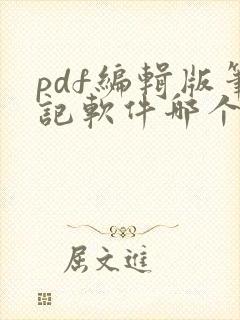 pdf編輯版筆
記軟件哪个
屈文進